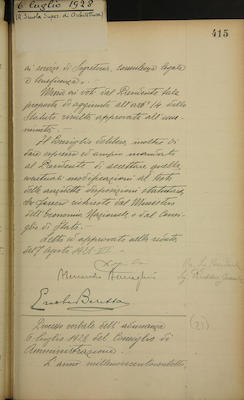 6 luglio 1928
(R. Scuola Super. di Architettura)
415
ai servizi di Segreteria, consulenza legale
e beneficenza. —
Messa ai voti dal Presidente tale
proposta di aggiunta all'art. 14 dello
Statuto risulta approvata all'una-
nimità. —
Il Consiglio delibera inoltre di
dare espresso ed ampio mandato
al Presidente di accettare quelle
eventuali modificazioni al testo
delle anzidette disposizioni statutarie,
che fossero richieste dal Ministero
dell'Economia Nazionale e dal Consi-
glio di Stato. —
Letto ed approvato nella seduta
del agosto 1928
Processo verbale dell'adunanza
6 luglio 1928 del Consiglio di
Amministrazione. —
(21)
L'anno millenovecentoventotto,